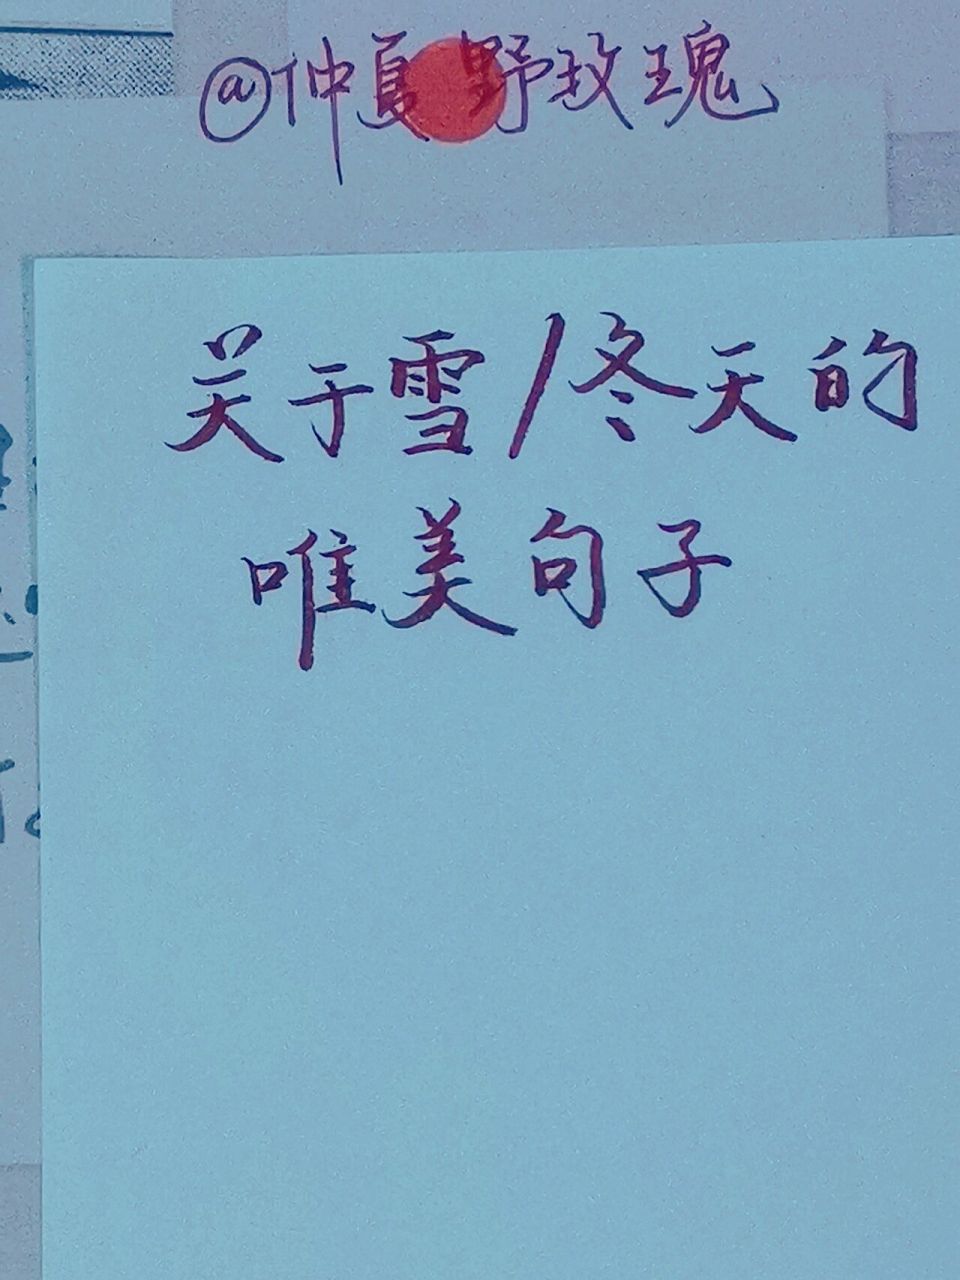 @仲夏野玫瑰
关于雪/冬天的
唯美句子